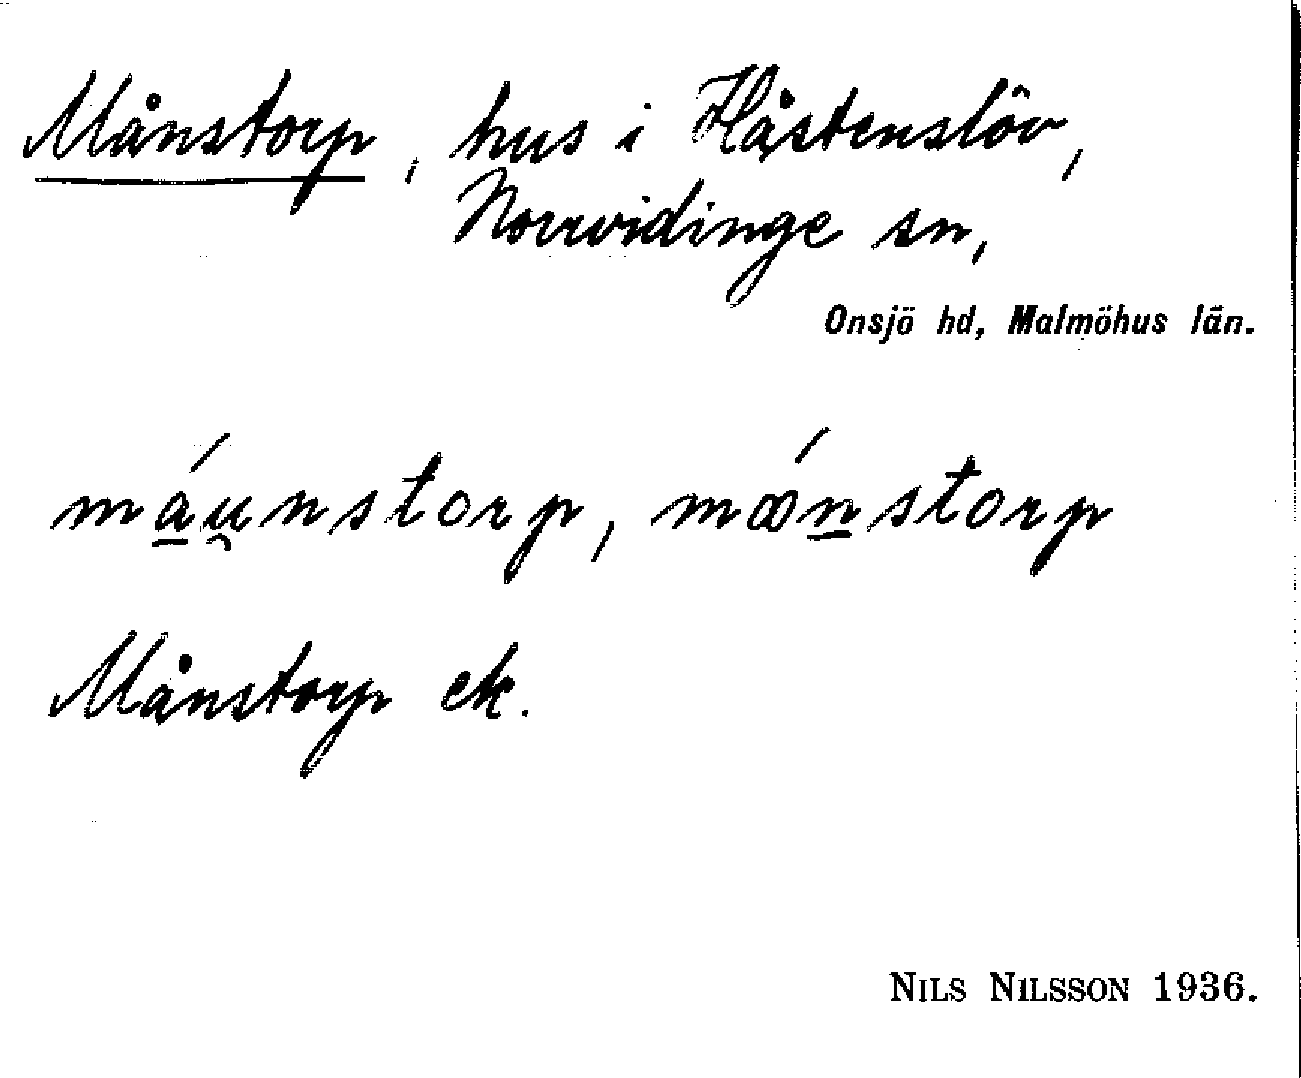 Månstorp, hus i Håstenslöv,
Norrvidinge sn,
Onsjö hd, Malmöhus län.
má̱u̯nstorp, mꝏ́n̲storp
Månstorp ek.
NILS NILSSON 1936.